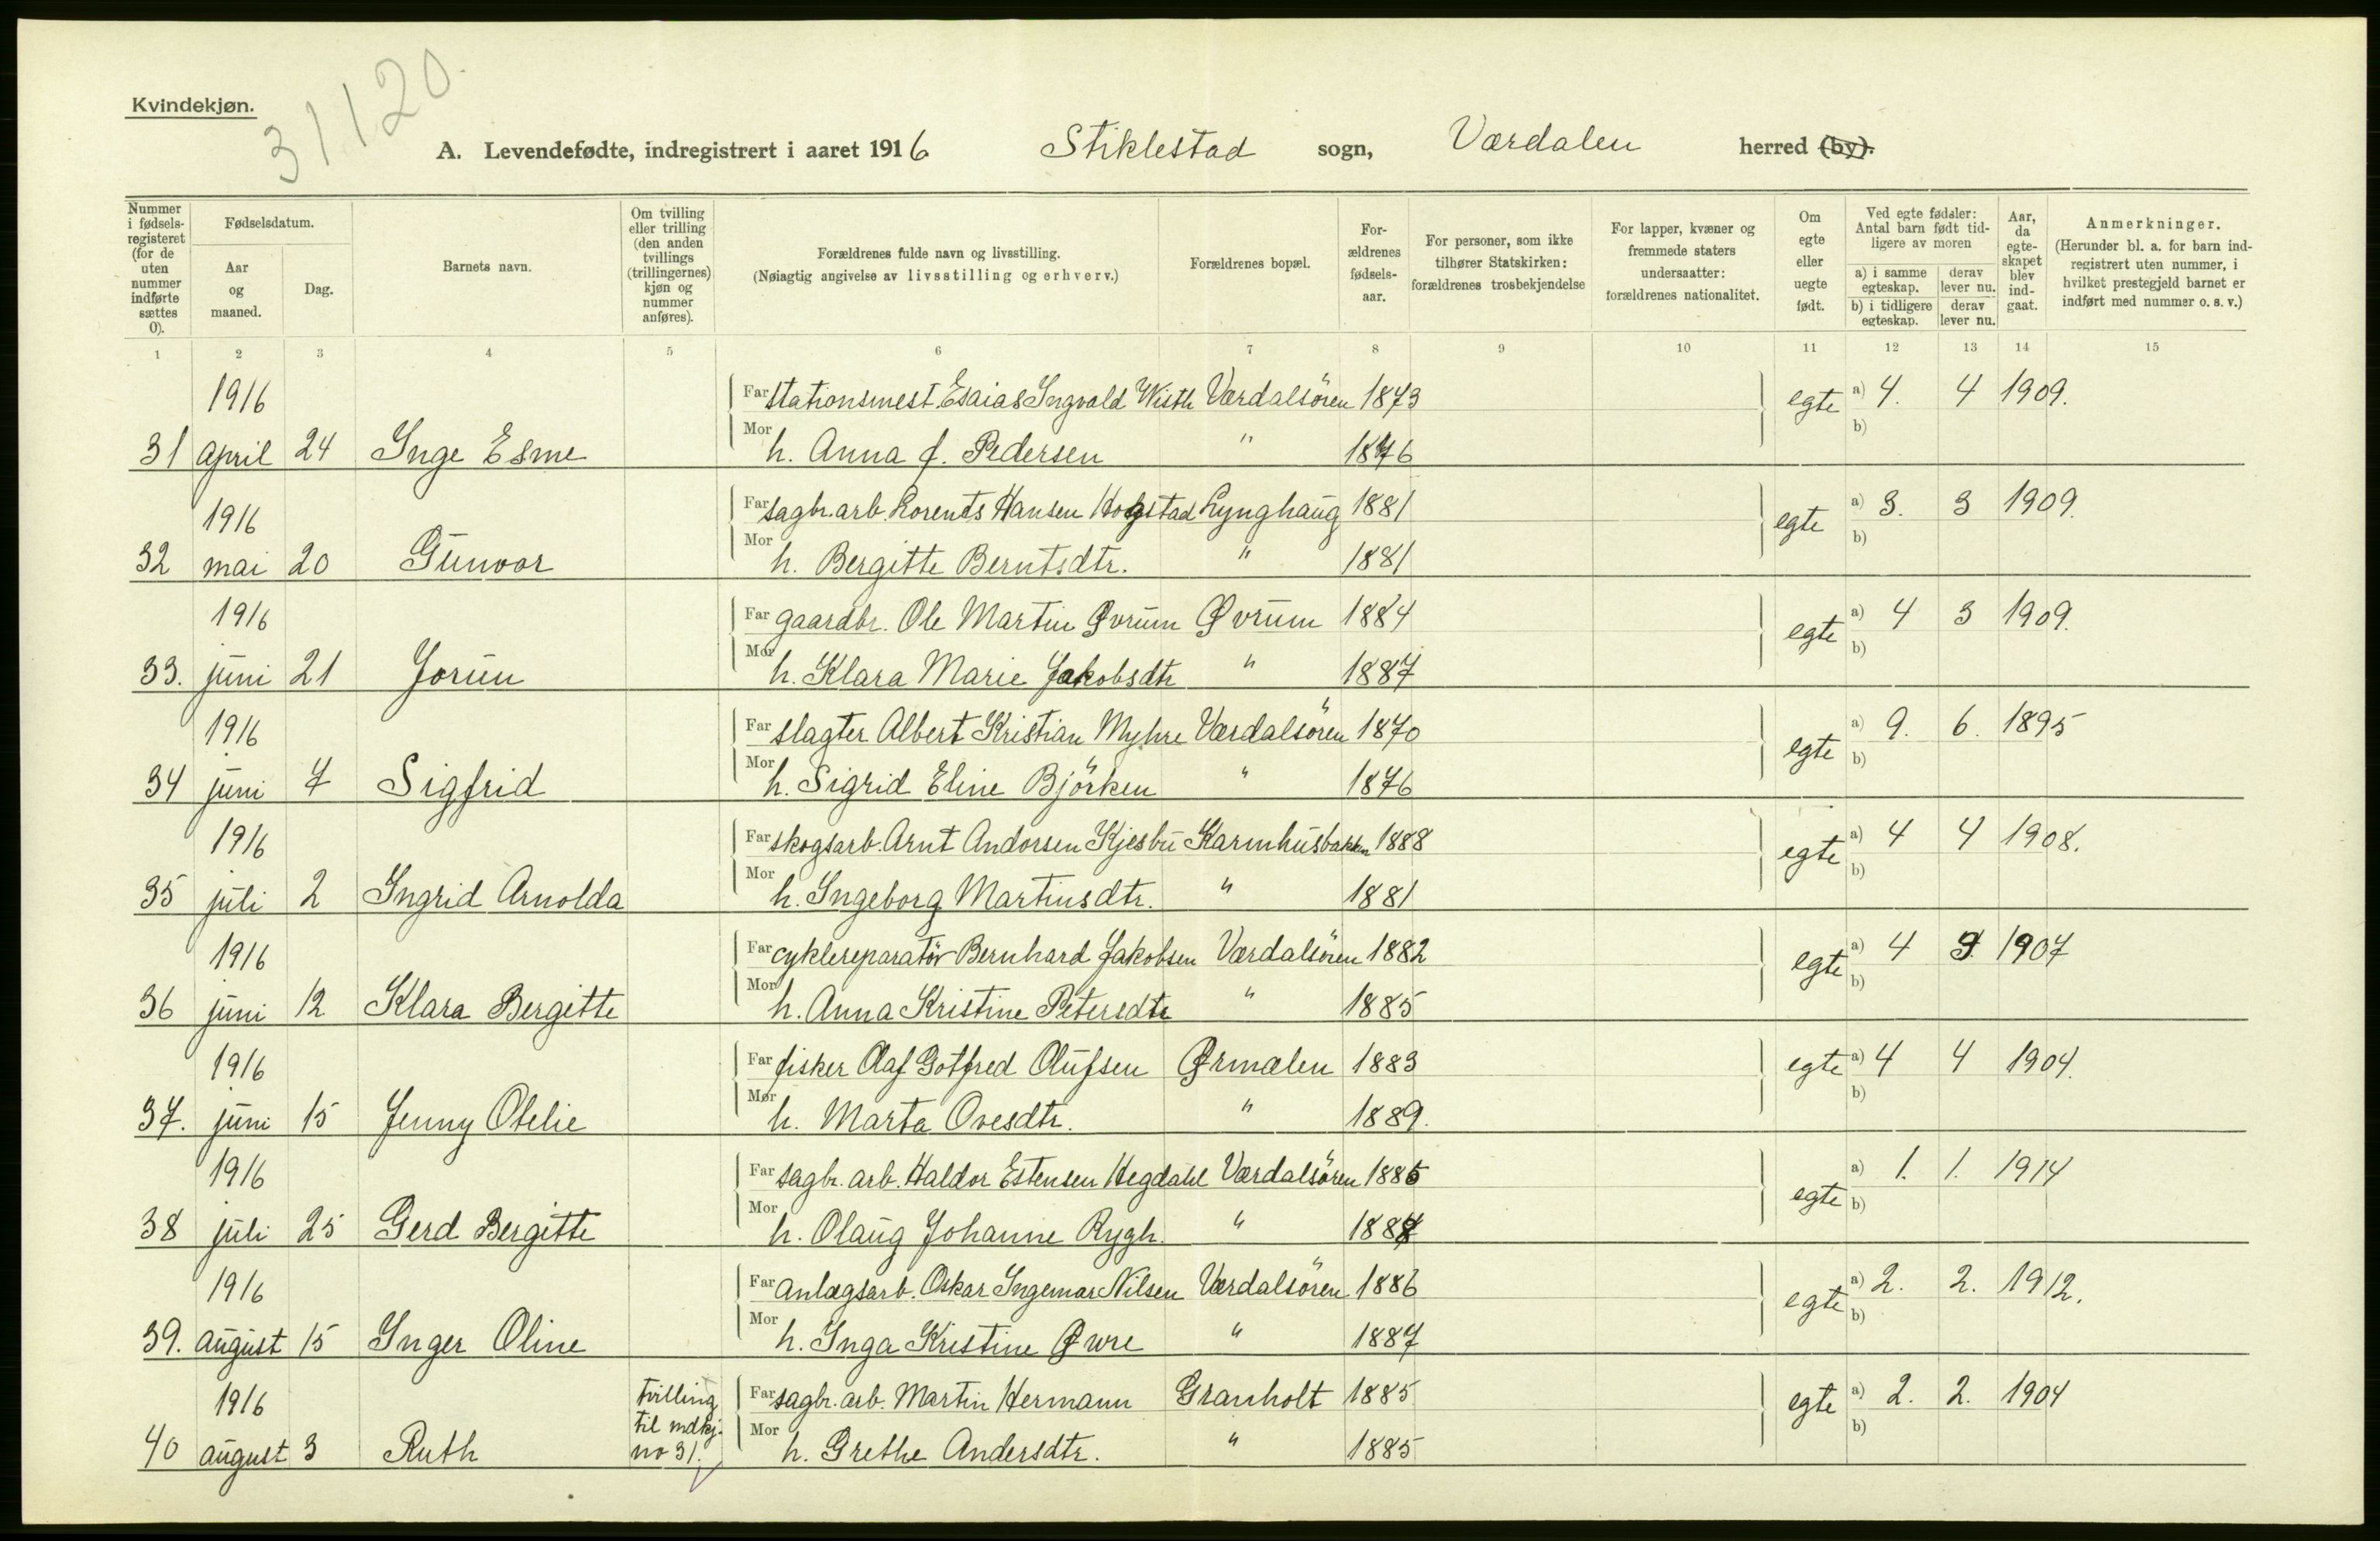 Kvindekjøn.
31120.
A. Levendefødte, indregistrert i aaret 1916 Stiklestad sogn, Værdalen herred (by).
Nummer i fødselsregisteret (for de uten nummer indførte sættes 0).
Fødselsdatum.
Aar og maaned.
Dag.
Barnets navn.
Om tvilling eller trilling (den anden tvillings (trillingernes) kjøn og nummer anføres).
Forældrenes fulde navn og livsstilling.
(Nøiagtig angivelse av livsstilling og erhverv.)
Forældrenes bopæl.
Forældrenes fødselsaar.
For personer, som ikke tilhører Statskirken: forældrenes trosbekjendelse
For lapper, kvæner og fremmede staters undersaatter: forældrenes nationalitet.
Om egte eller uegte født.
Ved egte fødsler: Antal barn født tidligere av moren
a) i samme egteskap. derav lever nu.
b) i tidligere egteskap. derav lever nu.
Aar, da egteskapet blev indgaat.
Anmerkninger.
(Herunder bl. a. for barn indregistrert uten nummer, i hvilket prestegjeld barnet er indført med nummer o. s. v.)
1 2 3 4 5 6 7 8 9 10 11 12 13 14 15
1916 Far stationsmest. Esaias Ingvald Wisth Værdalsören 1873 egte a) 4. 4 1909.
31 april 24 Inge Esme Mor h. Anna f. Pedersen " 1876 b)
1916 Far sagbr.arb. Lorents Hansen Hogstad Lynghaug 1881 egte a) 3. 3 1909.
32 mai 20 Gunvor Mor h. Bergitte Berntsdtr. " 1881 b)
1916 Far gaardbr. Ole Martin Øvrum Øvrum 1884 egte a) 4 3 1909.
33. juni 21 Jorun Mor h. Klara Marie Jakobsdtr " 1887 b)
1916 Far slagter Albert Kristian Myhre Værdalsören 1870 egte a) 9. 6. 1895
34 juni 7 Sigfrid Mor h. Sigrid Eline Björken " 1876 b)
1916 Far skogsarb. Arnt Andorsen Kjesbu Karmhusbakken 1888 egte a) 4 4 1908.
35 juli 2 Ingrid Arnolda Mor h. Ingeborg Martinsdtr. " 1881 b)
1916 Far cyklereparatör Bernhard Jakobsen Værdalsören 1882 egte a) 4 3 1907
36 juni 12 Klara Bergitte Mor h. Anna Kristine Petersdtr " 1885 b)
1916 Far fisker Olaf Gotfred Olufsen Ørmælen 1883 egte a) 4 4 1904.
37. juni 15 Jenny Otelie Mor h. Marta Ovesdtr. " 1889. b)
1916 Far sagbr. arb. Haldor Estensen Hegdahl Værdalsören 1885 egte a) 1. 1. 1914
38 juli 25 Gerd Bergitte Mor h. Olaug Johanne Rygh. " 1887 b)
1916 Far anlægsarb. Oskar Ingemar Nilsen Værdalsören 1886 egte a) 2. 2. 1912.
39. august 15 Inger Oline Mor h. Inga Kristine Øwre " 1887 b)
1916 tvilling Far sagbr. arb. Martin Hermann Granholt 1885 egte a) 2. 2. 1904
40 august 3 Ruth til mdkj. no 31. Mor h. Grethe Andersdtr. " 1885 b)